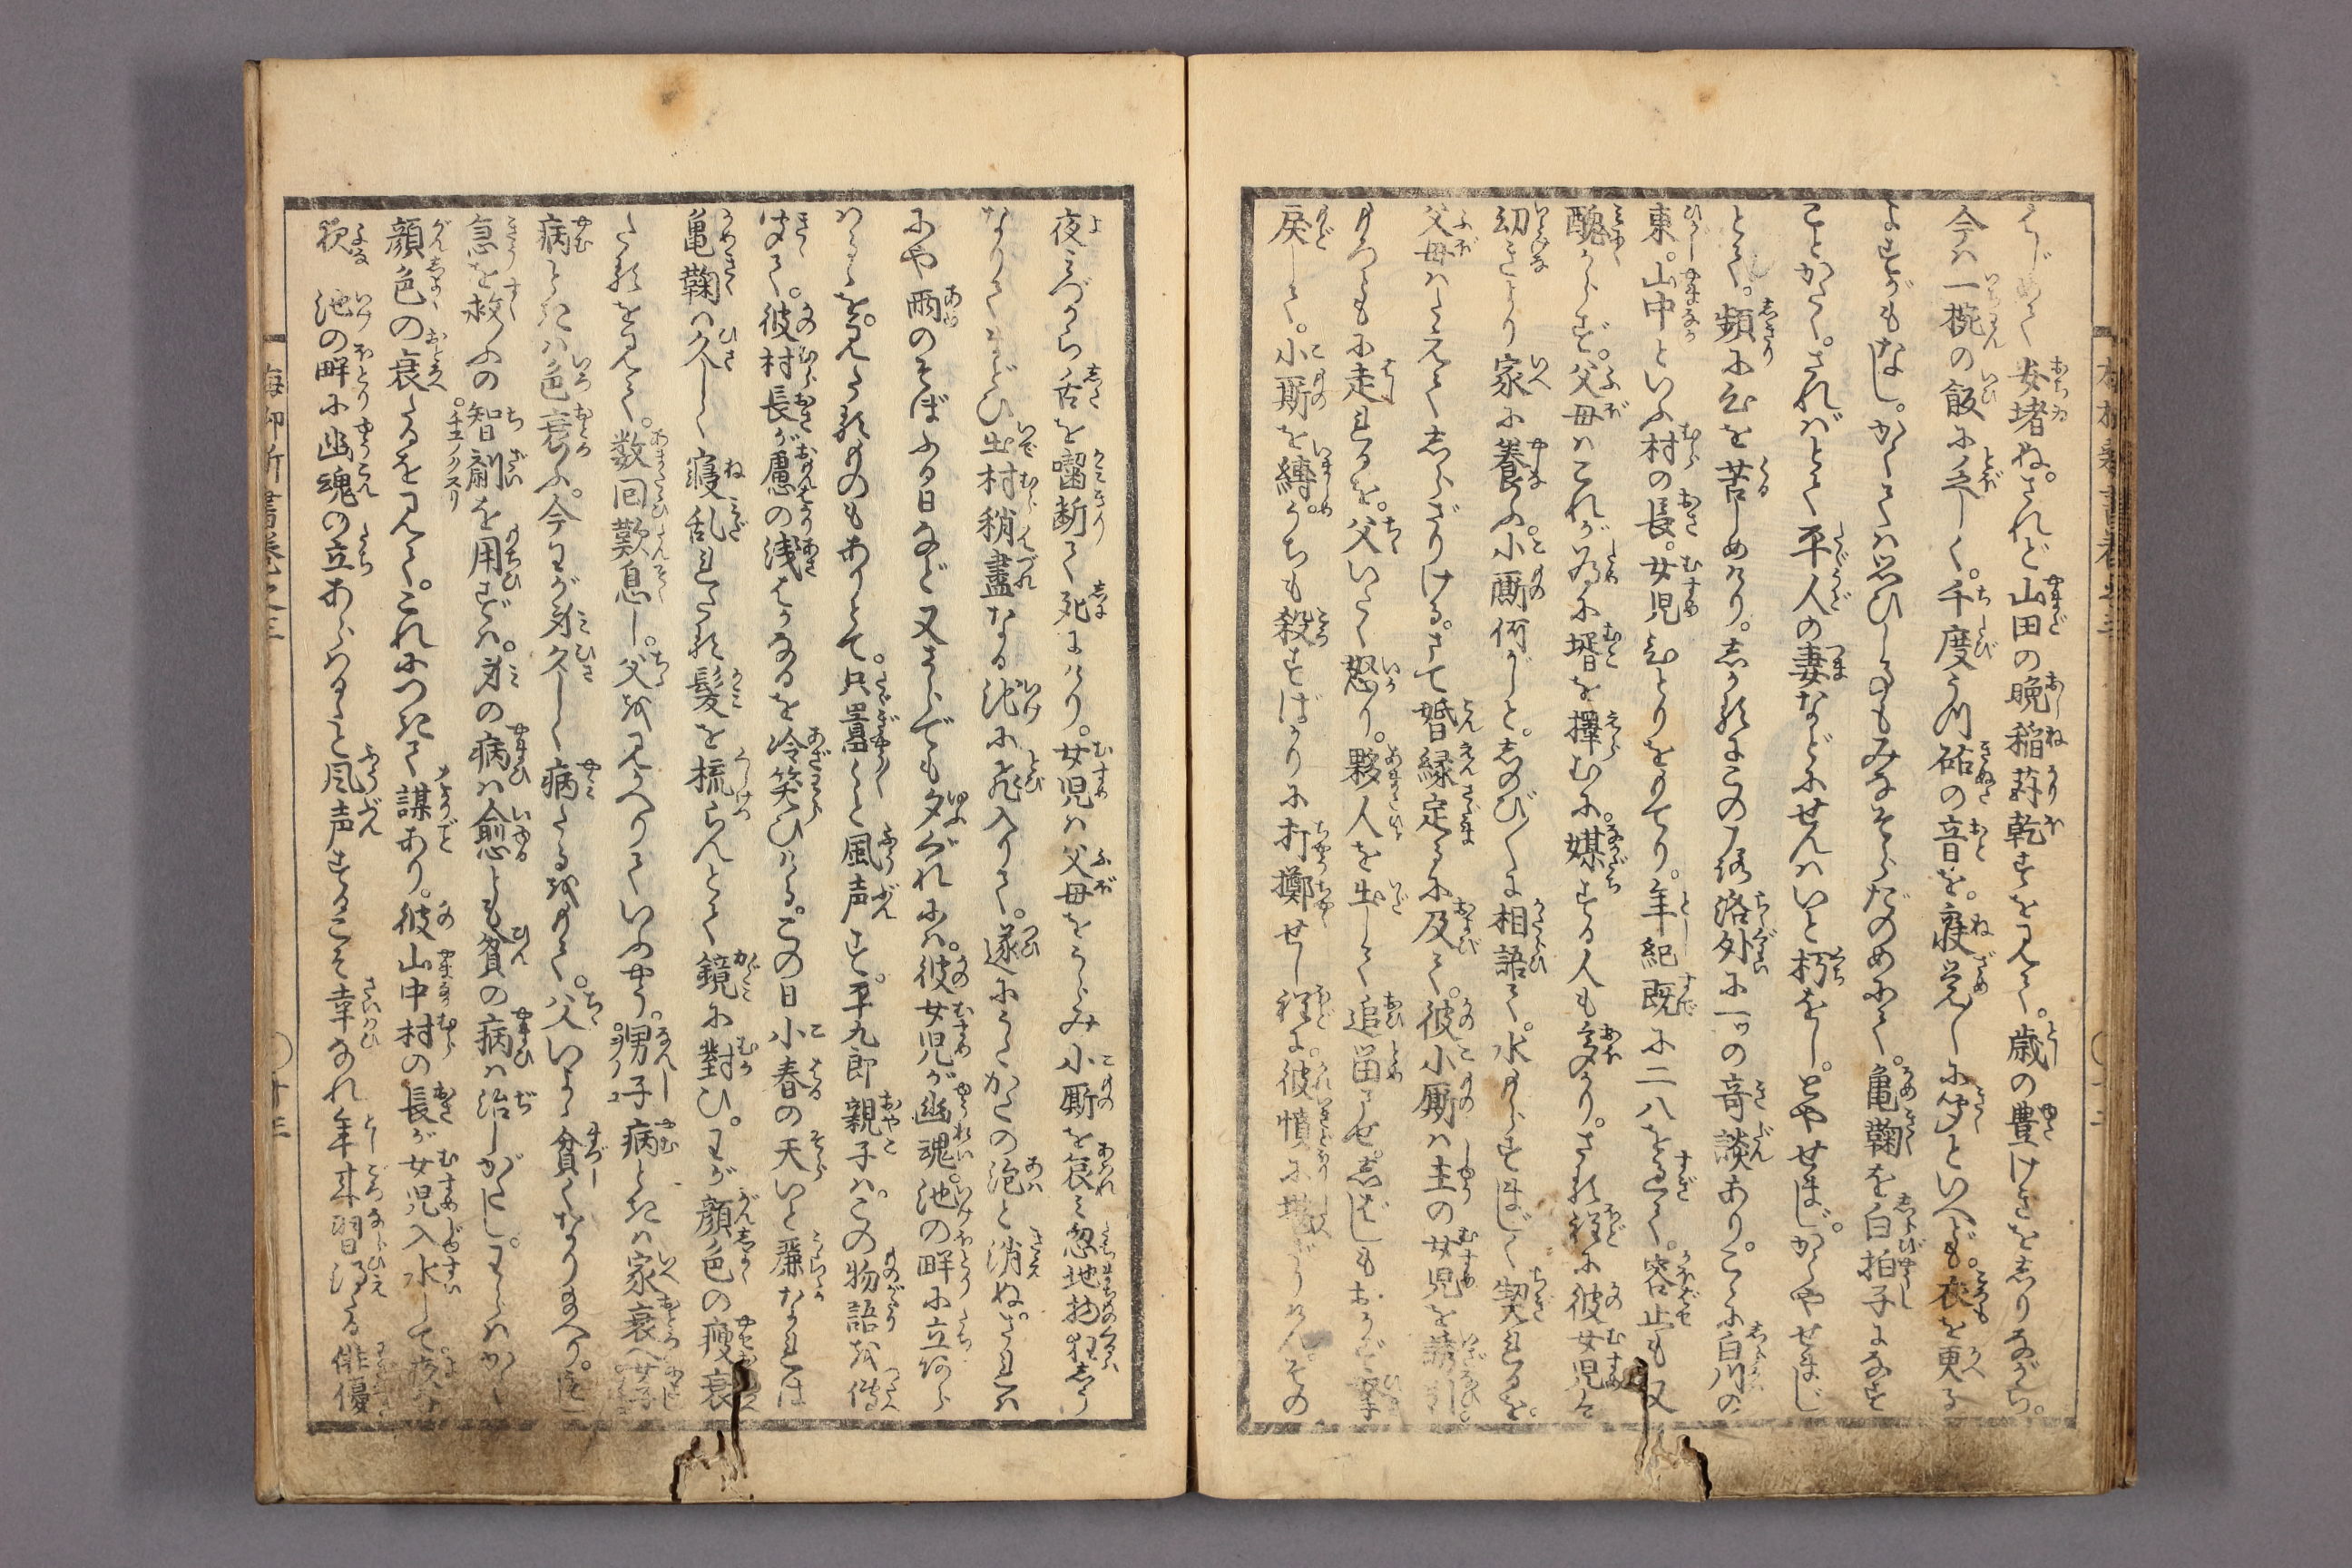 はじめて安堵ぬ。されど山田の晩稲苅乾すを見て。歳の豊けきをしりながら。
今は一椀の飯に乏しく。千度うつ砧の音を。寝覚しに聞といへども。衣を更る
よすがもなし。かくては思ひしものもみなそらだのめにて。亀鞠を白拍子になす
ことかたく。さればとて平人の妻などにせんはいと朽をし。とやせまし。かくやせまし
とて。頻に心を苦しめけり。しかるにこのころ洛外に一ツの奇談あり。こゝに白川の
東。山中といふ村の長。女児ひとりをもてり。年紀既に二八をこえて。容止も又
醜からず。父母はこれが為に壻を擇むに。媒する人も多かり。さる程に彼女児は
幼きより家に養ふ。小厮何がしと。しのび〳〵に相語て。水もらすまじく契れるを。
父母はたえてしらざりける。さて婚縁定るに及びて。彼小厮は主の女児を誘引
もろともに走れるを。父いたく怒り。夥人を出して追留させ。しばしもおかで
戻して。小厮を縛。うちも殺すばかりに打擲せし程に。彼憤に堪ざりけん。その
夜みづから舌を噛断て死にけり。女児は父母をうらみ小厮を哀み忽地物狂しう
なりてまどひ出村稍盡なる池に飛入りて。遂にうたかたの泡と消ぬ。されば
にや雨のそぼふる日など又さらでも夕ぐれには。彼女児が幽魂。池の畔に立あら
はるゝを。見たるものもありとて。只囂々と風声す。平九郎親子は。この物語を傳
聞て。彼村長が慮の浅はかなるを冷笑ひける。この日小春の天いと麗なれば
亀鞠は久しく寝乱れたる髪を梳らんとて鏡に對ひ。わが顔色の痩衰
たるを見て。数回歎息し。父を見かへりていふやう。男子病ときは家衰へ女子
病ときは色衰ふ。今わが身久しく病たるをもて。父いよゝ貧くなり給へり。
急を救ふの智劑を用ずは。身の病は愈とも貧の病は治しがたし。わらはかく
顔色の衰たるを見て。これにつきて謀あり。彼山中村の長が女児入水して
池の畔に幽魂の立あらはるゝと風声するこそ幸なれ年来習得たる俳優